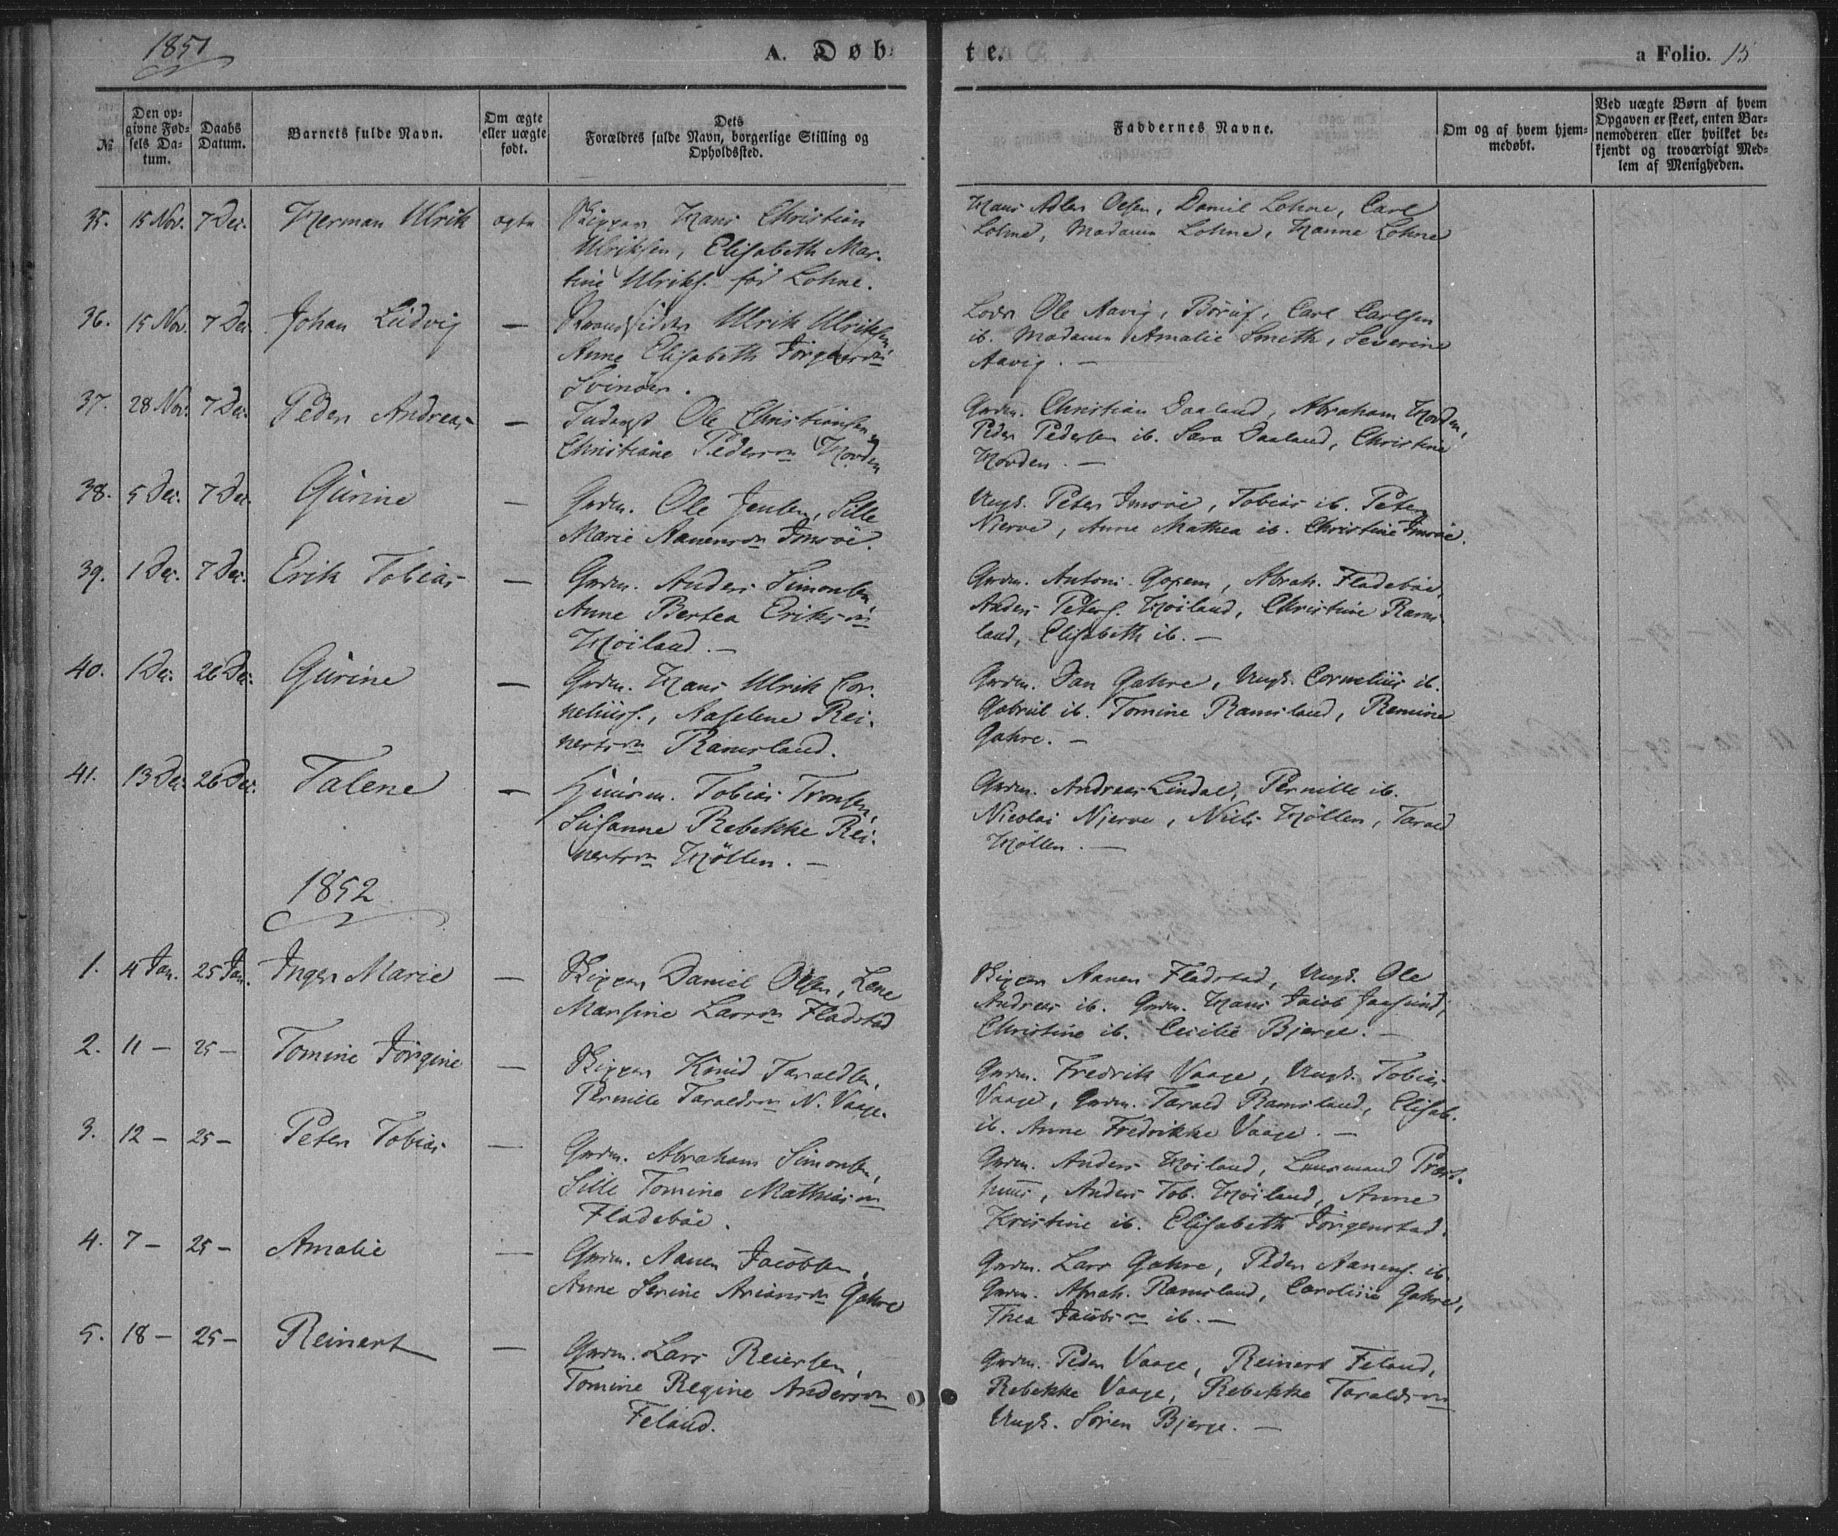 1851
A. Døb
te.
a Folio. 15
№
Den op-
givne Fød-
sels Da-
tum.
Daabs
Datum.
Barnets fulde Navn.
Om ægte
eller uægte
født.
Dets
Forældres fulde Navn, borgerlige Stilling og
Opholdssted.
Faddernes Navne.
Om og af hvem hjem-
medøbt.
Ved uægte Børn af hvem
Opgaven er skeet, enten Bar-
nemoderen eller hvilket be-
kjendt og troværdigt Med-
lem af Menigheden.
35. 15 Nov. 7 Dec. Herman Ulrik ægte Skipper Hans Christian
Ulriksen, Elisabeth Mar-
tine Ulriks. fød Lohne.
Hans Adler Olsen, Daniel Lohne, Carl
Lohne, Madame Lohne, Hanne Lohne
36. 15 Nov. 7 Dec Johan Ludvig — Strandsidder Ulrik Ulriksen,
Anne Elisabeth Jørgens
Svinøer.
Lods Ole Aavig, Carl Carlsen
ib. Madame Amalie Smith, Severine
Aavig. —
37. 28 Nov. 7 Dec. Peder Andreas — Inderst Ole Christiansen,
Christiane Pedersdn Horden
Grdm. Christian Daaland, Abraham Horden,
Peder Pedersen ib. Sara Daaland, Christine
Horden. —
38. 5 Dec. 7 Dec. Gurine — Grdm. Ole Jensen, Sille
Marie Aanensdn Imsøe.
Ungk. Peter Imsøe, Tobias ib. Peter
Nierve, Anne Mathea ib. Christine Imsøe.
39. 1 Dec. 7 Dec. Erik Tobias — Grdm. Anders Simonsen,
Anne Bertea Eriksdn
Høiland. —
Grdm. Antoni Abrah. Fladebøe,
Anders Peters. Høiland, Christine Rams-
land, Elisabeth ib. —
40. 1 Dec. 26 Dec. Gurine — Grdm. Hans Ulrik Cor-
neliuss., Aaselene Rei-
nertsdn Ramsland.
Grdm. Jan Gahre, Ungk. Cornelius ib.
Gabriel ib. Tomine Ramsland, Ramine
Gahre. —
41. 13 Dec. 26 Dec. Talene — Huusm. Tobias Tronsen,
Susanne Rebekke Rei-
nertsdn Høllen. —
Grdm. Andreas Lindal, Pernille ib.
Nicolai Njerve, Niels Høllen, Tarald
Høllen. —
1852
1. 4 Jan. 25 Jan. Inger Marie — Skipper Daniel Olsen, Lene
Mansine Larsdn Fladstad
Skipper Aanen Fladstad, Ungk. Ole
Andreas ib. Grdm. Hans Jacob Jaasund,
Christine ib. Cecilie Bjerge. —
2. 11 — 25 — Tomine Jørgine — Skipper Knud Taraldsen,
Pernille Taraldsdn N. Vaage.
Grdm. Fredrik Vaage, Ungk. Tobias
Vaage, Grdm. Tarald Ramsland, Elisab.
ib. Anne Fredrikke Vaage. —
3. 12 — 25 — Peter Tobias — Grdm. Abraham Simonsen,
Sille Tomine Mathiasdn
Fladebøe.
Grdm. Anders Høiland, Lensmand Præst-
huus, Anders Tob. Høiland, Anne
Kristine ib. Elisabeth Jørgenstad.
4. 7 — 25 — Amalie — Grdm. Aanen Jacobsen,
Anne Serine Ariansdn Gahre
Grdm. Lars Gahre, Peder Aanens. ib.
Grdm. Abrah. Ramsland, Carolisia Gahre,
Thea Jacobsdn ib. —
5. 18 — 25 — Reinert — Grdm. Lars Reiersen,
Tomine Regine Andersdn
Feland.
Grdm. Peder Vaage, Reinert Feland,
Rebekke Vaage, Rebekke Taraldsdn
Ungk. Søren Bjerge. —